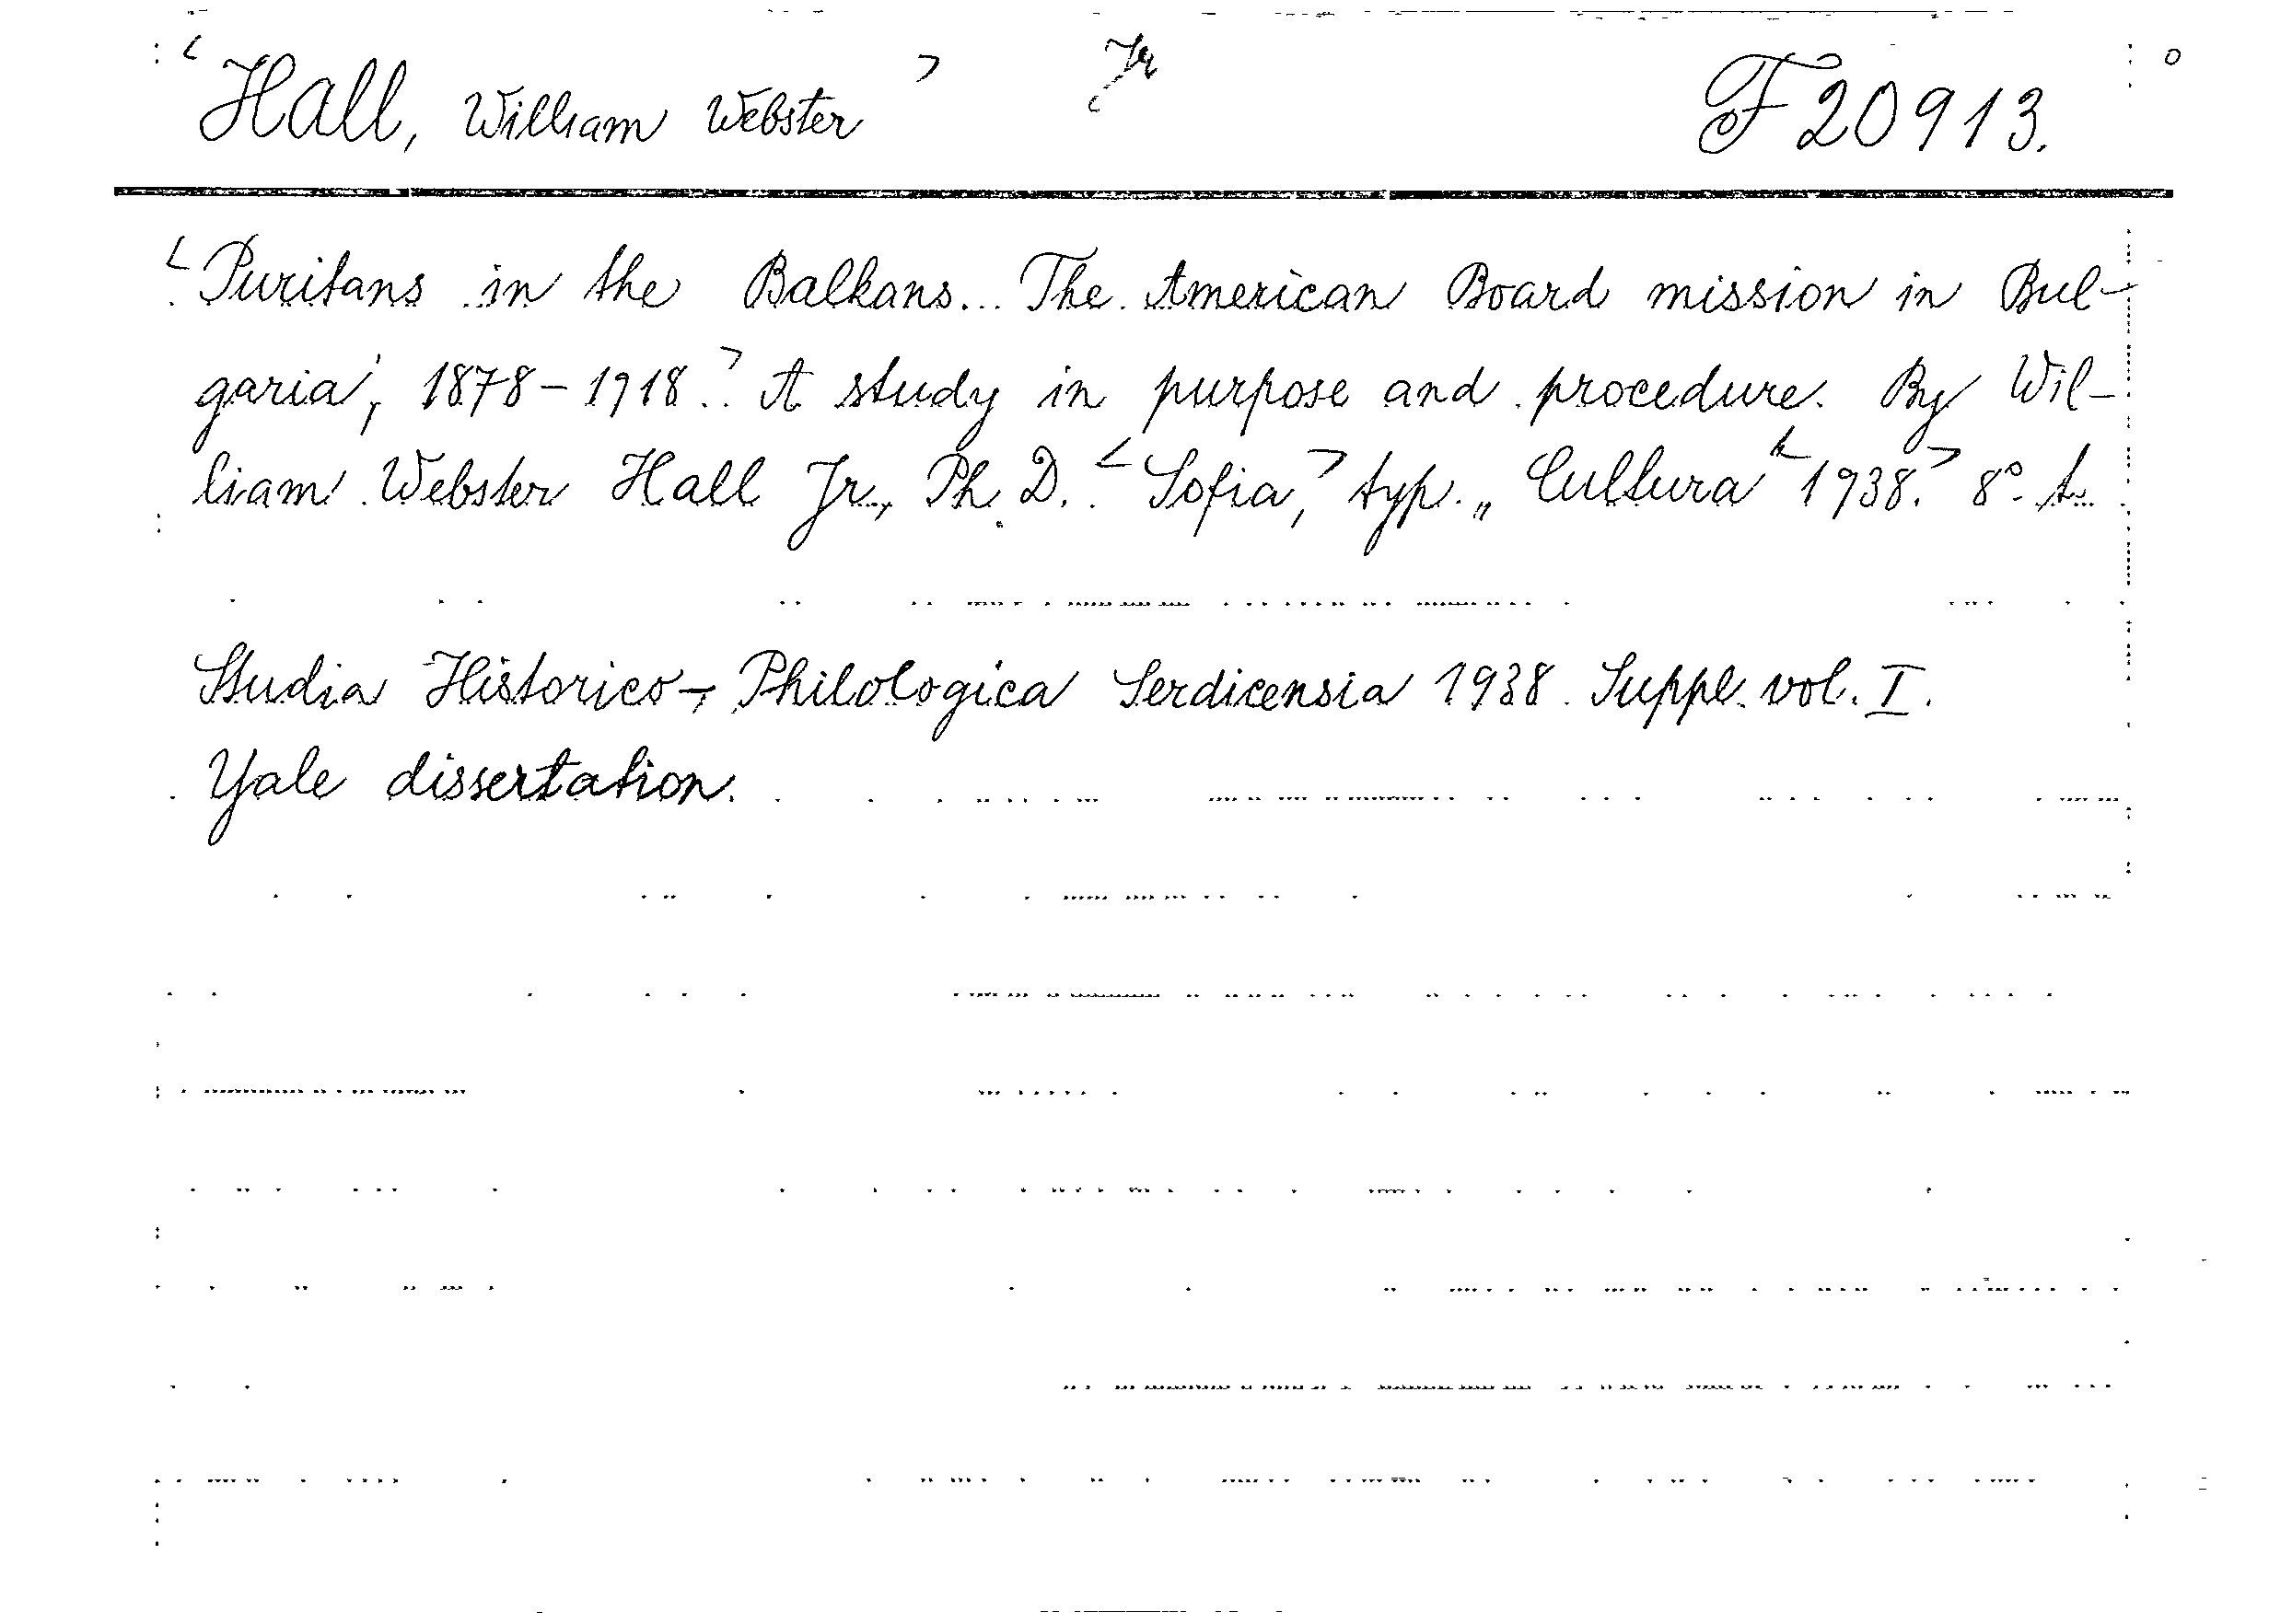 <Hall, William Webster> Jr F 20913.
<Puritans in the Balkans... The American Board mission in Bul-
garia, 1878-1918.> A study in purpose and procedure. By Wil-
liam Webster Hall Jr., Ph. D. <Sofia,> typ. „Cultura“ <1938.> 8°.
Studia Historico-Philologica Serdicensia 1938. Suppl. vol. I.
Yale dissertation.